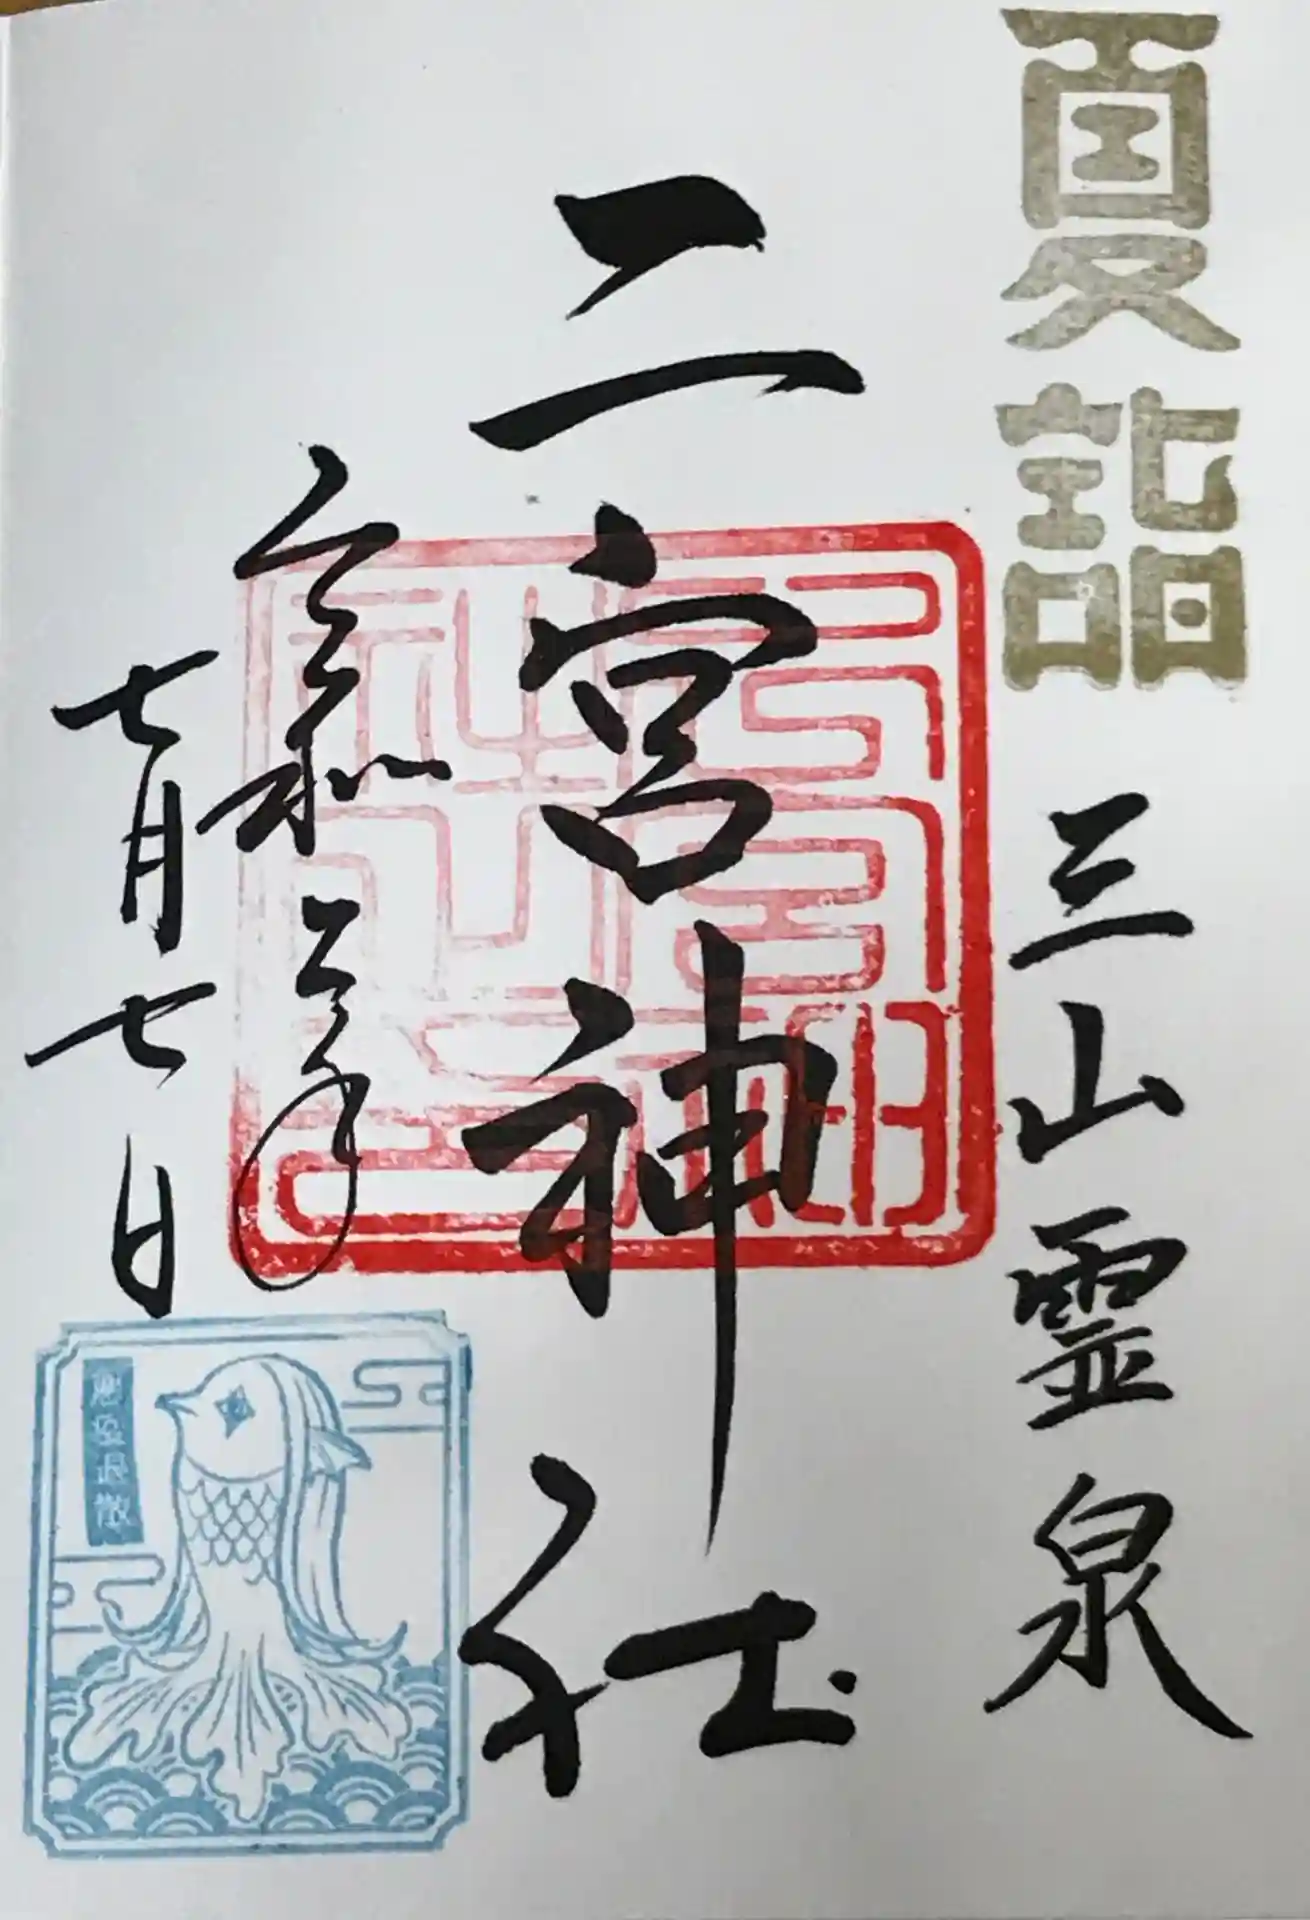 夏詣
三山霊泉
二宮神社
令和二年
七月七日
悪疫退散